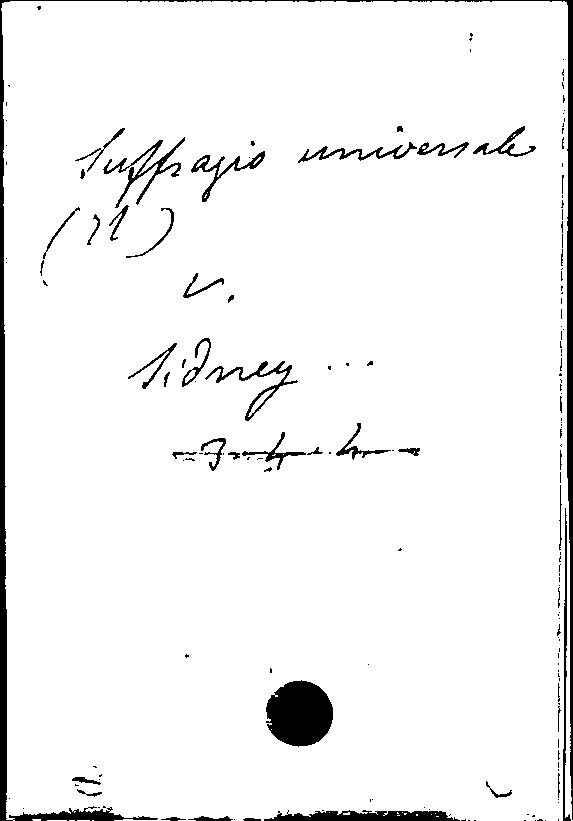 Suffragio universale
(Il)
v.
Sidney ...